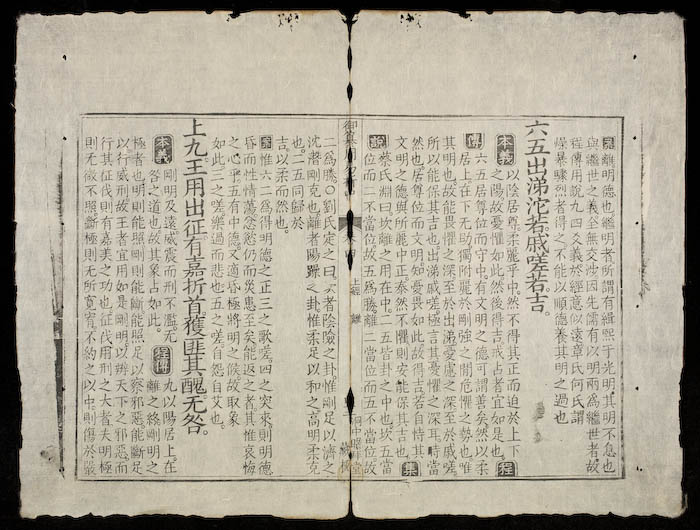 案離明德也繼明者所謂有緝熙于光明其明不息也
與繼世之義全無交涉因先儒有以明兩為繼世者故
程傳用說九四爻義於經意似遠章氏何氏謂
燥暴驟烈者得之不能以順德養其明之過也
六五出涕沱若戚嗟若吉。
本義 以陰居尊柔麗乎中然不得其正而迫於上下
之陽故憂懼如此然後得吉戒占者宜如是也。 程
傳 六五居尊位而守中有文明之德可謂善矣然以柔
居上在下无助獨附麗於剛強之間危懼之勢也唯
其明也故能畏懼之深至於出涕憂慮之深至於戚嗟
所以能保其吉也出涕戚嗟極言其憂懼之深耳時當
然也居尊位而文明知憂畏如此故得吉若自恃其
文明之德與所麗中正泰然不懼則安能保其吉也 集
說 蔡氏淵曰坎離之用在中二五皆卦之中也坎五當
位而二不當位故五為勝離二當位而五不當位故
御纂周易
上經 離
二為勝○劉氏定之曰坎者陰險之卦惟剛足以濟之
沈潛剛克也離者陽躁之卦惟柔足以和之高明柔克
也二五同歸於
吉以柔而然也
案惟六二為得明德之正三之歌嗟四之突來則明德
昏而性情蕩忿慾仍而災患至矣能返之者其惟哀悔
之心乎五有中德又適昏極將明之候故取象
如此三之嗟樂過而悲也五之嗟自怨自艾也
上九王用出征有嘉折首獲匪其醜无咎。
本義 剛明及遠威震而刑不濫无
咎之道也故其象占如此。 程傳 九以陽居上在
離之終剛明之
極者也明則能照剛則能斷能照足以察邪惡能斷足
以行威刑故王者宜用如是剛明以辨天下之邪惡而
行其征伐則有嘉美之功也征伐用刑之大者夫明極
則无微不照斷極則无所寬宥不約之以中則傷於嚴